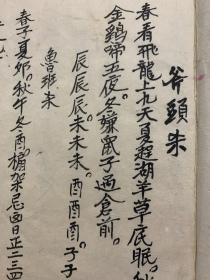 斧頭朱
春看飛龍上九天夏起湖羊草底眠。秋
金鷄啼五夜。冬藏鼠子過倉前。
辰辰辰。未未未。酉酉酉。子子
魯班朱
春子夏卯。秋午冬酉。楄架忌凶日正三四